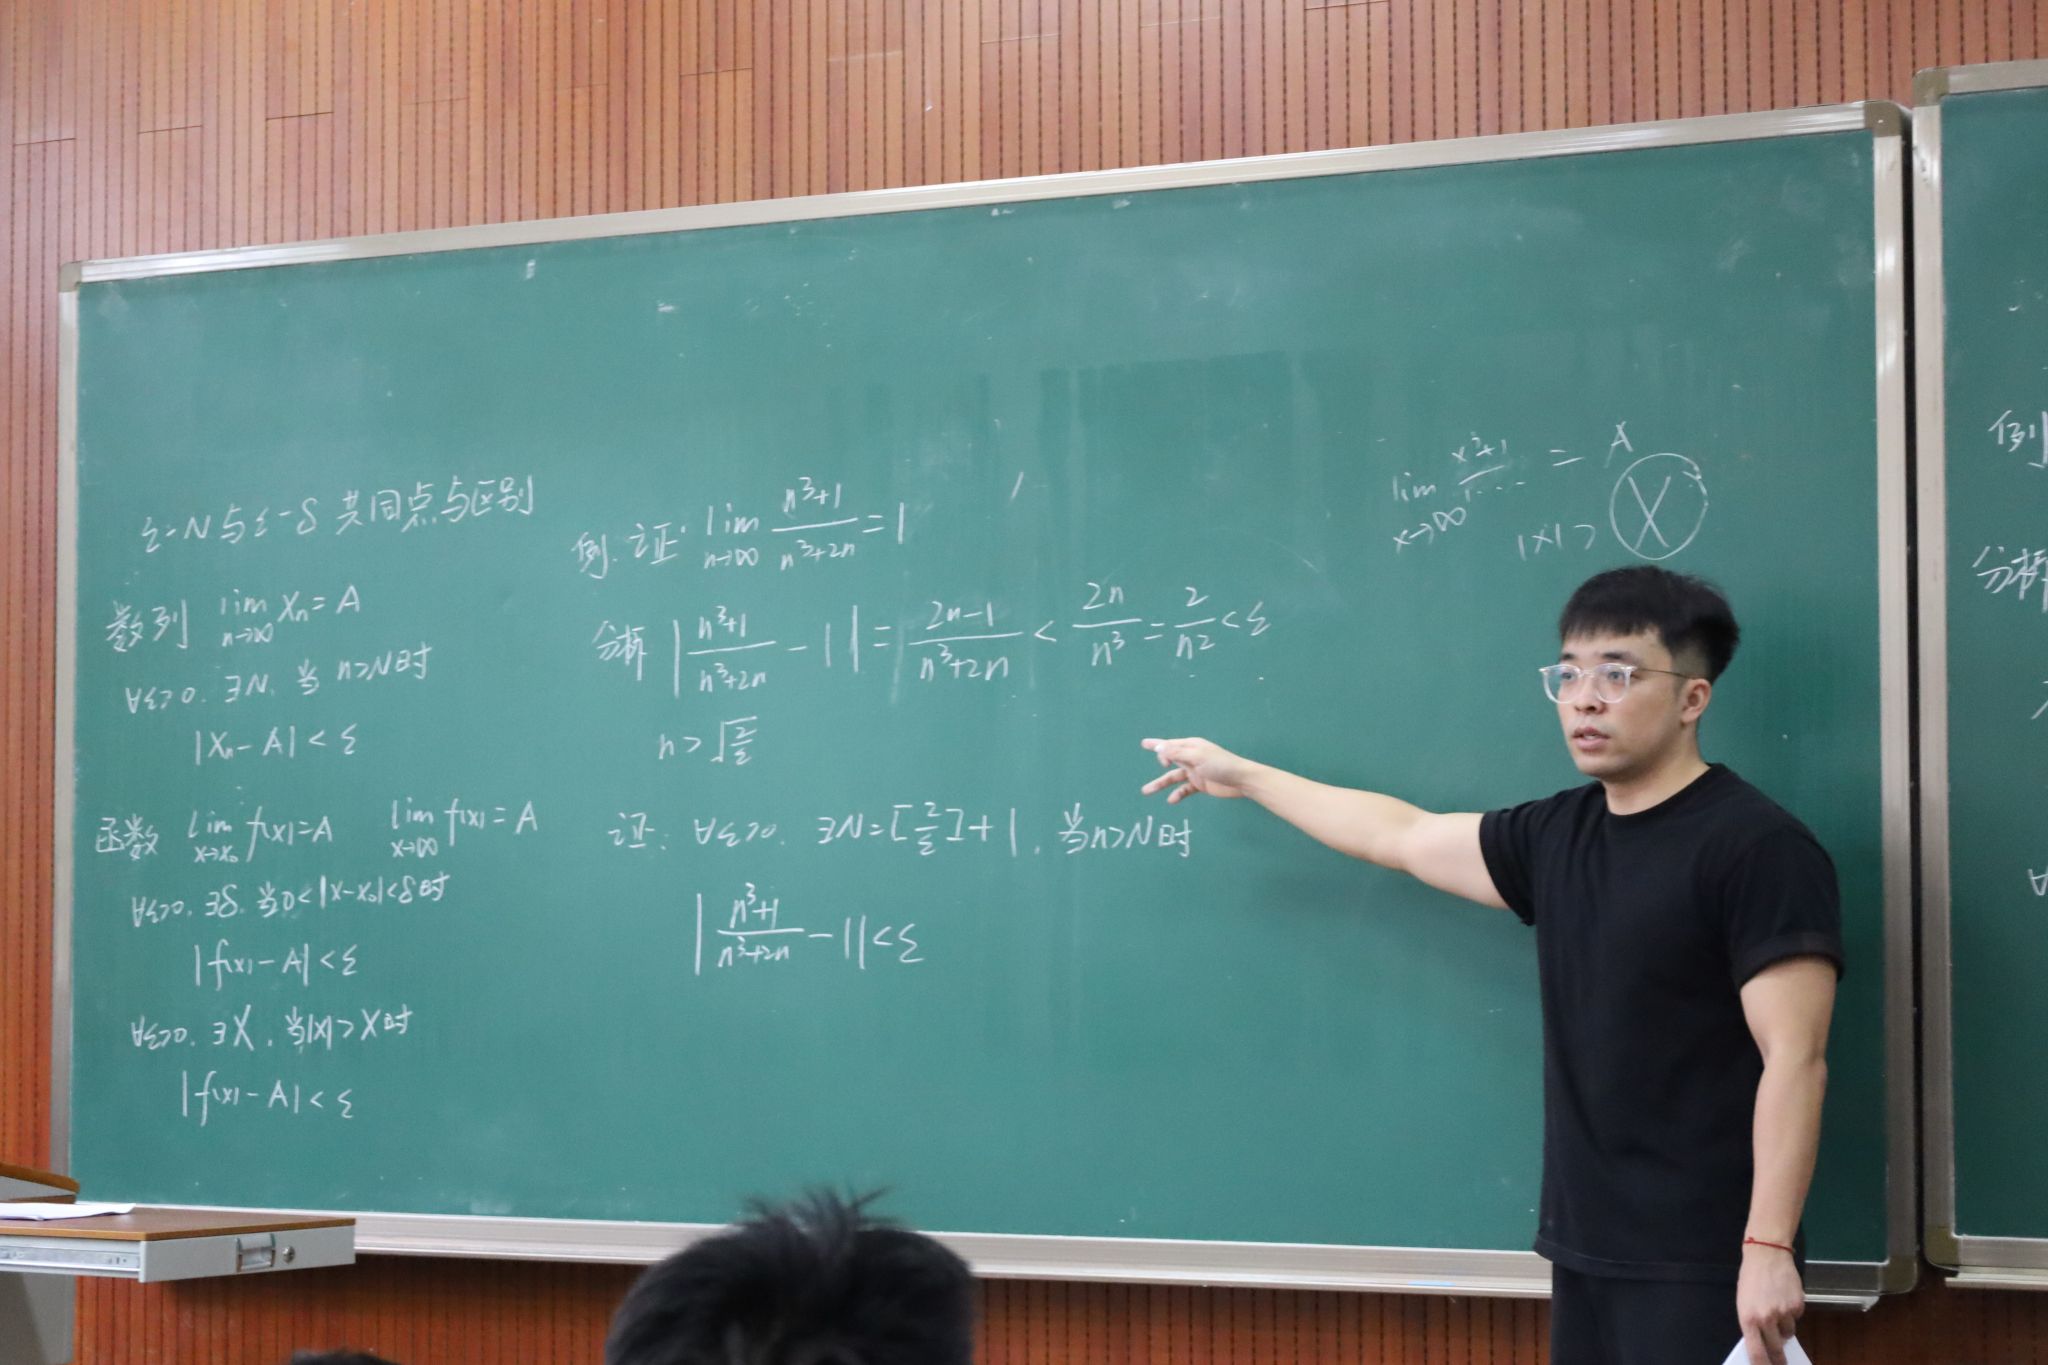 ε-N与ε-δ共同点与区别
数列 lim n→∞ Xn = A
∀ε>0. ∃N. 当 n>N时
|Xn - A| < ε
函数 lim x→x₀ f(x)=A lim x→∞ f(x)=A
∀ε>0. ∃δ. 当0<|x-x₀|<δ时
|f(x)-A| < ε
∀ε>0. ∃X. 当|x|>X时
|f(x)-A| < ε
例. 证: lim n→∞ (n³+1)/(n³+2n) = 1
分析 |(n³+1)/(n³+2n) - 1| = (2n-1)/(n³+2n) < 2n/n³ = 2/n² < ε
n > √(2/ε)
证: ∀ε>0. ∃N=[2/ε]+1. 当n>N时
|(n³+1)/(n³+2n) - 1| < ε
lim x→∞ (x²+1)/(1...) = A
|x| > X
例
分析
∀